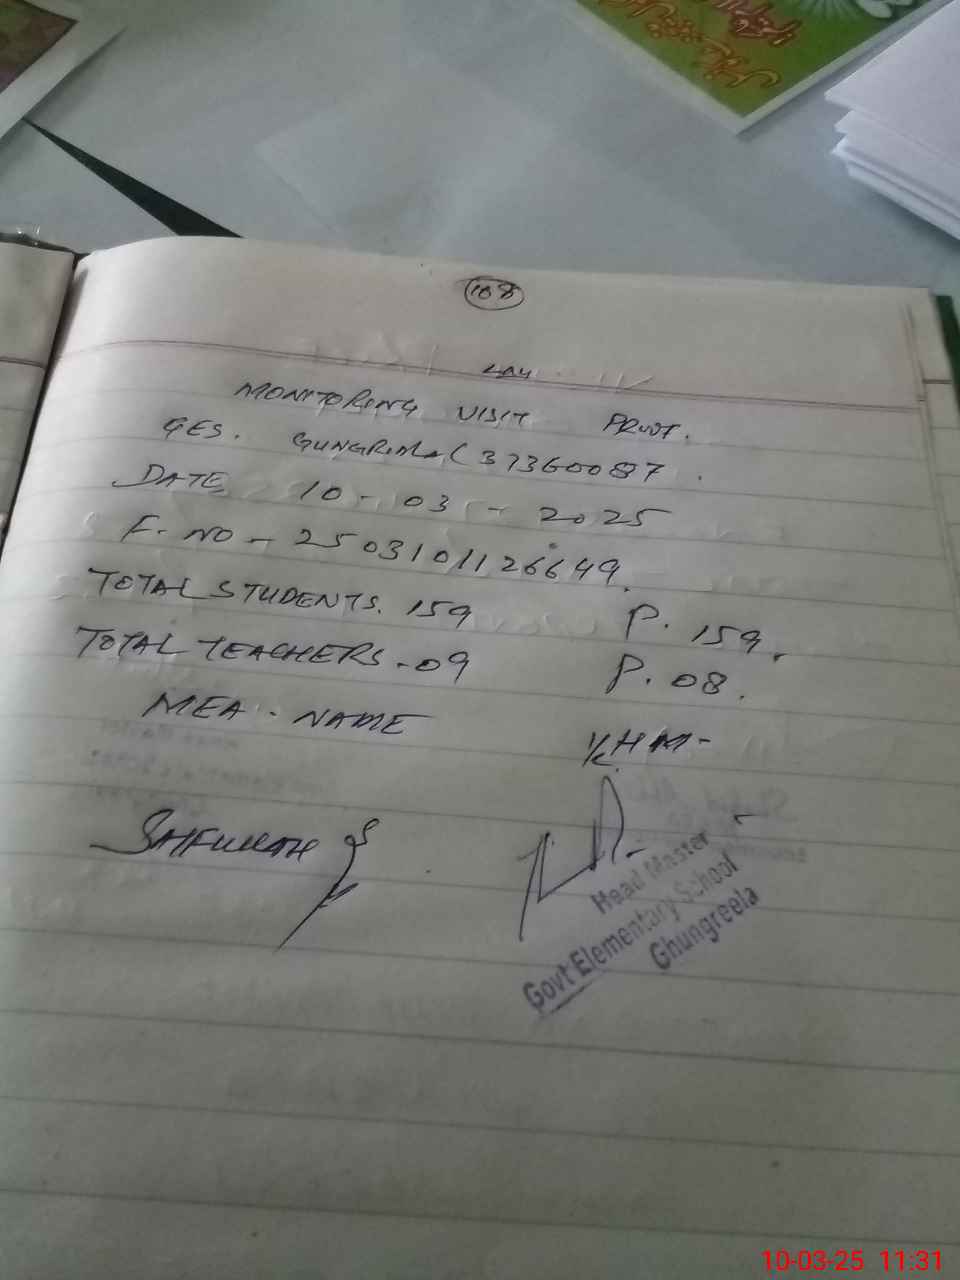 108
MONITORING VISIT PROOF.
GES. GUNGRILA (37360087.
DATE 10-03-2025
F.NO - 2503101126649.
TOTAL STUDENTS. 159 P. 159.
TOTAL TEACHERS. 09 P. 08.
MEA. NAME
Head Master
Govt Elementary School
Ghungreela
10-03-25 11:31